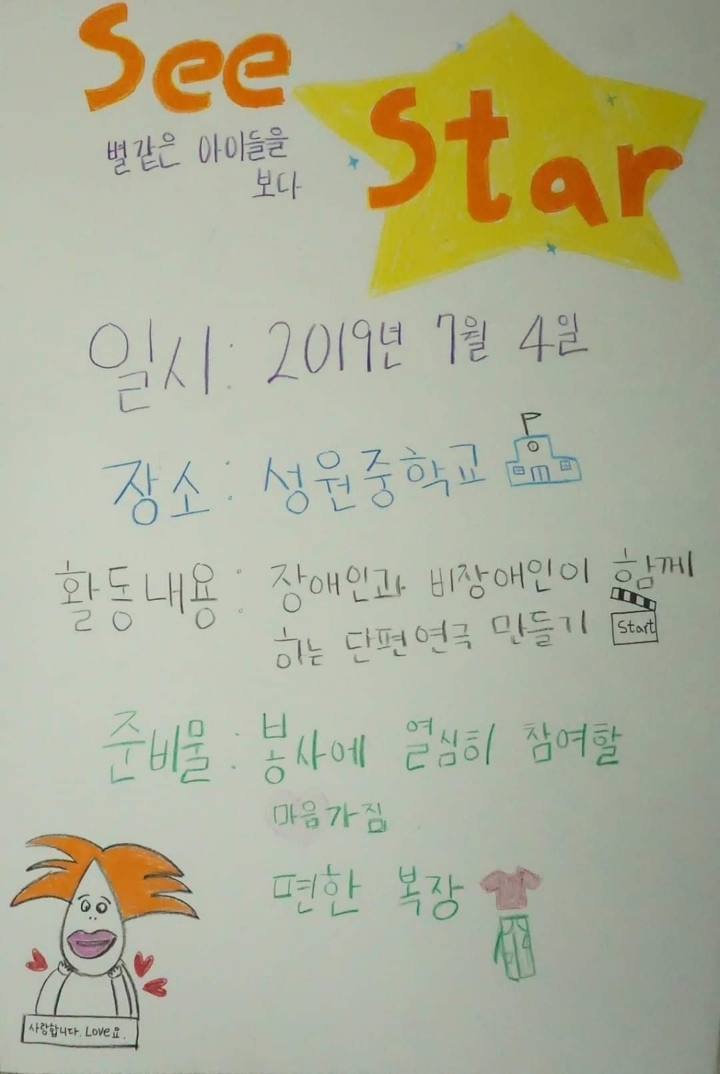 See
Star
별같은 아이들을
보다
일시: 2019년 7월 4일
장소: 성원중학교
활동내용: 장애인과 비장애인이 함께
하는 단편연극 만들기
Start
준비물: 봉사에 열심히 참여할
마음가짐
편한 복장
사랑합니다. Love요.